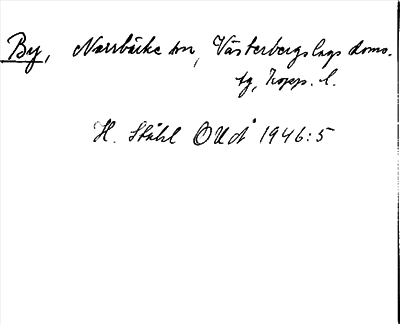 By, Norrbärke sn, Västerbergslags doms.
tg, Kopp. l.
H. Ståhl OUÅ 1946:5